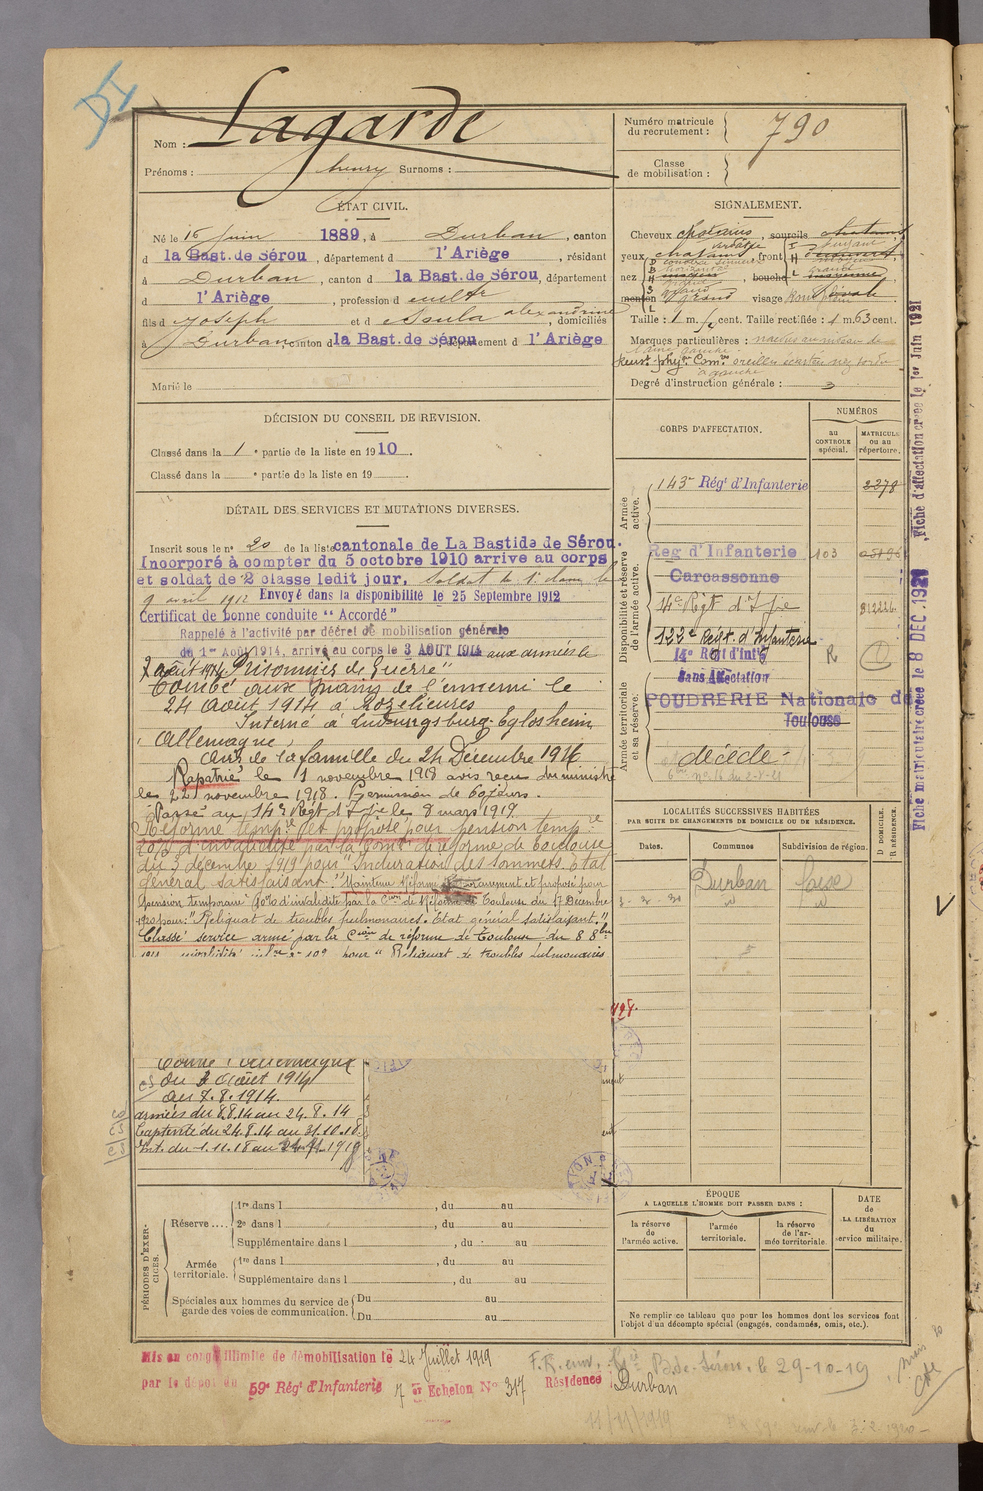 DI
Nom : Lagarde
Prénoms : henry Surnoms :
ÉTAT CIVIL.
Né le 16 Juin 1889, à Durban, canton
d la Bast. de Sérou, département d l'Ariège, résidant
à Durban, canton d la Bast. de Sérou, département
d l'Ariège, profession d cultr
fils d Joseph et d Soula alexandrine, domiciliés
à Durban, canton d la Bast. de Sérou département d l'Ariège
Marié le
DÉCISION DU CONSEIL DE REVISION.
Classé dans la 1e partie de la liste en 1910.
Classé dans la e partie de la liste en 19
DÉTAIL DES SERVICES ET MUTATIONS DIVERSES.
Inscrit sous le n° 20 de la liste cantonale de La Bastide de Sérou.
Incorporé à compter du 5 octobre 1910 arrive au corps
et soldat de 2 classe ledit jour. Soldat de 1e classe le
9 avril 1912 Envoyé dans la disponibilité le 25 Septembre 1912
Certificat de bonne conduite "Accordé"
Rappelé à l'activité par décret de mobilisation générale
du 1er Août 1914, arrivé au corps le 3 AOUT 1914 aux armées le
7 août 1914 "Prisonnier de Guerre"
Tombé aux mains de l'ennemi le
24 Aout 1914 à Rozelieures
Interné à Ludwigsburg-Eglosheim
(Allemagne)
avis de la famille du 24 Décembre 1914
Rapatrié le 1 novembre 1918 avis reçu du ministre
le 22 novembre 1918. Permission de 60 jours.
Passé au 14e Regt d'Ifie le 8 mars 1919
Réformé tempre et proposé pour pension tempre
10% d'invalidité par la Comon de réforme de Toulouse
du 3 décembre 1919 pour "Induration des sommets. Etat
général satisfaisant." Maintenu Réformé temporairement et proposé pour
pension temporaire 10% d'invalidité par la Cion de Réforme de Toulouse du 17 Décembre
1920 pour: "Reliquat de troubles pulmonaires. Etat général satisfaisant."
Classé service armé par la Cion de réforme de Toulouse du 8 8bre
pour "Reliquat de troubles pulmonaires
du 2 Août 1914
au 7.8.1914.
armées du 8.8.14 au 24.8.14
Captivité du 24.8.14 au 31.10.18
Int. du 1.11.18 au 1919
PÉRIODES D'EXERCICES.
Réserve .... 1re dans l , du au
2e dans l , du au
Supplémentaire dans l , du au
Armée territoriale. 1re dans l , du au
Supplémentaire dans l , du au
Spéciales aux hommes du service de garde des voies de communication. Du au
Du au
Numéro matricule du recrutement : 790
Classe de mobilisation :
SIGNALEMENT.
Cheveux chatains, sourcils chatains
yeux chatains, front
nez moyen, bouche moyenne,
menton visage ovale
Taille : 1 m. cent. Taille rectifiée : 1 m. 63 cent.
Marques particulières :
Degré d'instruction générale : 3
CORPS D'AFFECTATION.
NUMÉROS
au CONTROLE spécial.
MATRICULE ou au répertoire.
Armée active.
143e Régt d'Infanterie 2378
Disponibilité et réserve de l'armée active.
Reg d'Infanterie 103
Carcassonne
14e Régt d'Ifie
122e Régt. d'Infanterie R
14e Régt d'Inf
Sans Affectation
Armée territoriale et sa réserve.
POUDRERIE Nationale de
Toulouse
décédé
LOCALITÉS SUCCESSIVES HABITÉES
PAR SUITE DE CHANGEMENTS DE DOMICILE OU DE RÉSIDENCE.
Dates. Communes Subdivision de région. D DOMICILE. R RÉSIDENCE.
Durban foix
ÉPOQUE
A LAQUELLE L'HOMME DOIT PASSER DANS :
la réserve de l'armée active.
l'armée territoriale.
la réserve de l'armée territoriale.
DATE DE LA LIBÉRATION du service militaire.
Ne remplir ce tableau que pour les hommes dont les services font
l'objet d'un décompte spécial (engagés, condamnés, omis, etc.).
Fiche d'affectation créée le 1er Juin 1921
Fiche matriculaire créée le 8 DEC. 1920
Mis en congé illimité de démobilisation le 24 Juillet 1919
par le dépôt du 59e Régt d'Infanterie 7 er Echelon N° 317 Résidence Durban
F.R. env. Gie B.de-Sérou. le 29-10-19